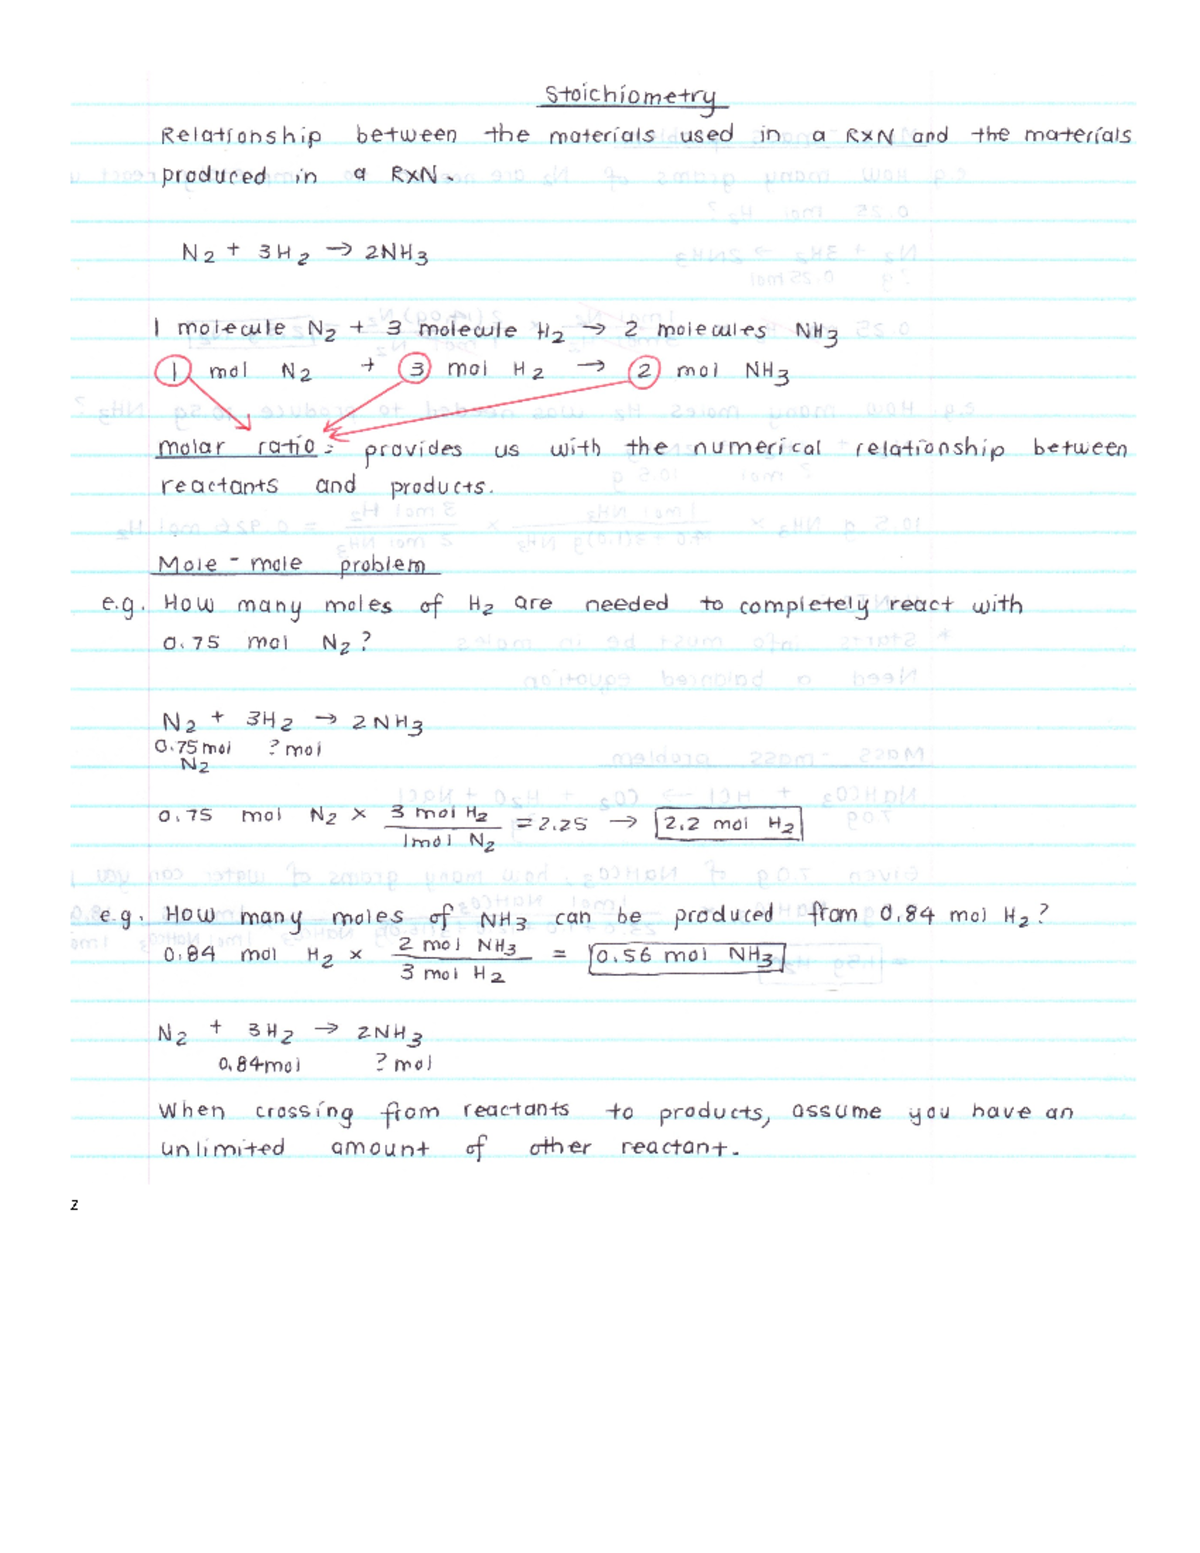 Stoichiometry
Relationship between the materials used in a RxN and the materials
produced in a RxN.
N2 + 3H2 → 2NH3
1 molecule N2 + 3 molecule H2 → 2 molecules NH3
1 mol N2 + 3 mol H2 → 2 mol NH3
molar ratio: provides us with the numerical relationship between
reactants and products.
Mole - mole problem
e.g. How many moles of H2 are needed to completely react with
0.75 mol N2?
N2 + 3H2 → 2NH3
0.75 mol ? mol
N2
0.75 mol N2 × 3 mol H2 / 1 mol N2 = 2.25 → 2.2 mol H2
e.g. How many moles of NH3 can be produced from 0.84 mol H2?
0.84 mol H2 × 2 mol NH3 / 3 mol H2 = 0.56 mol NH3
N2 + 3H2 → 2NH3
0.84mol ? mol
When crossing from reactants to products, assume you have an
unlimited amount of other reactant.
2